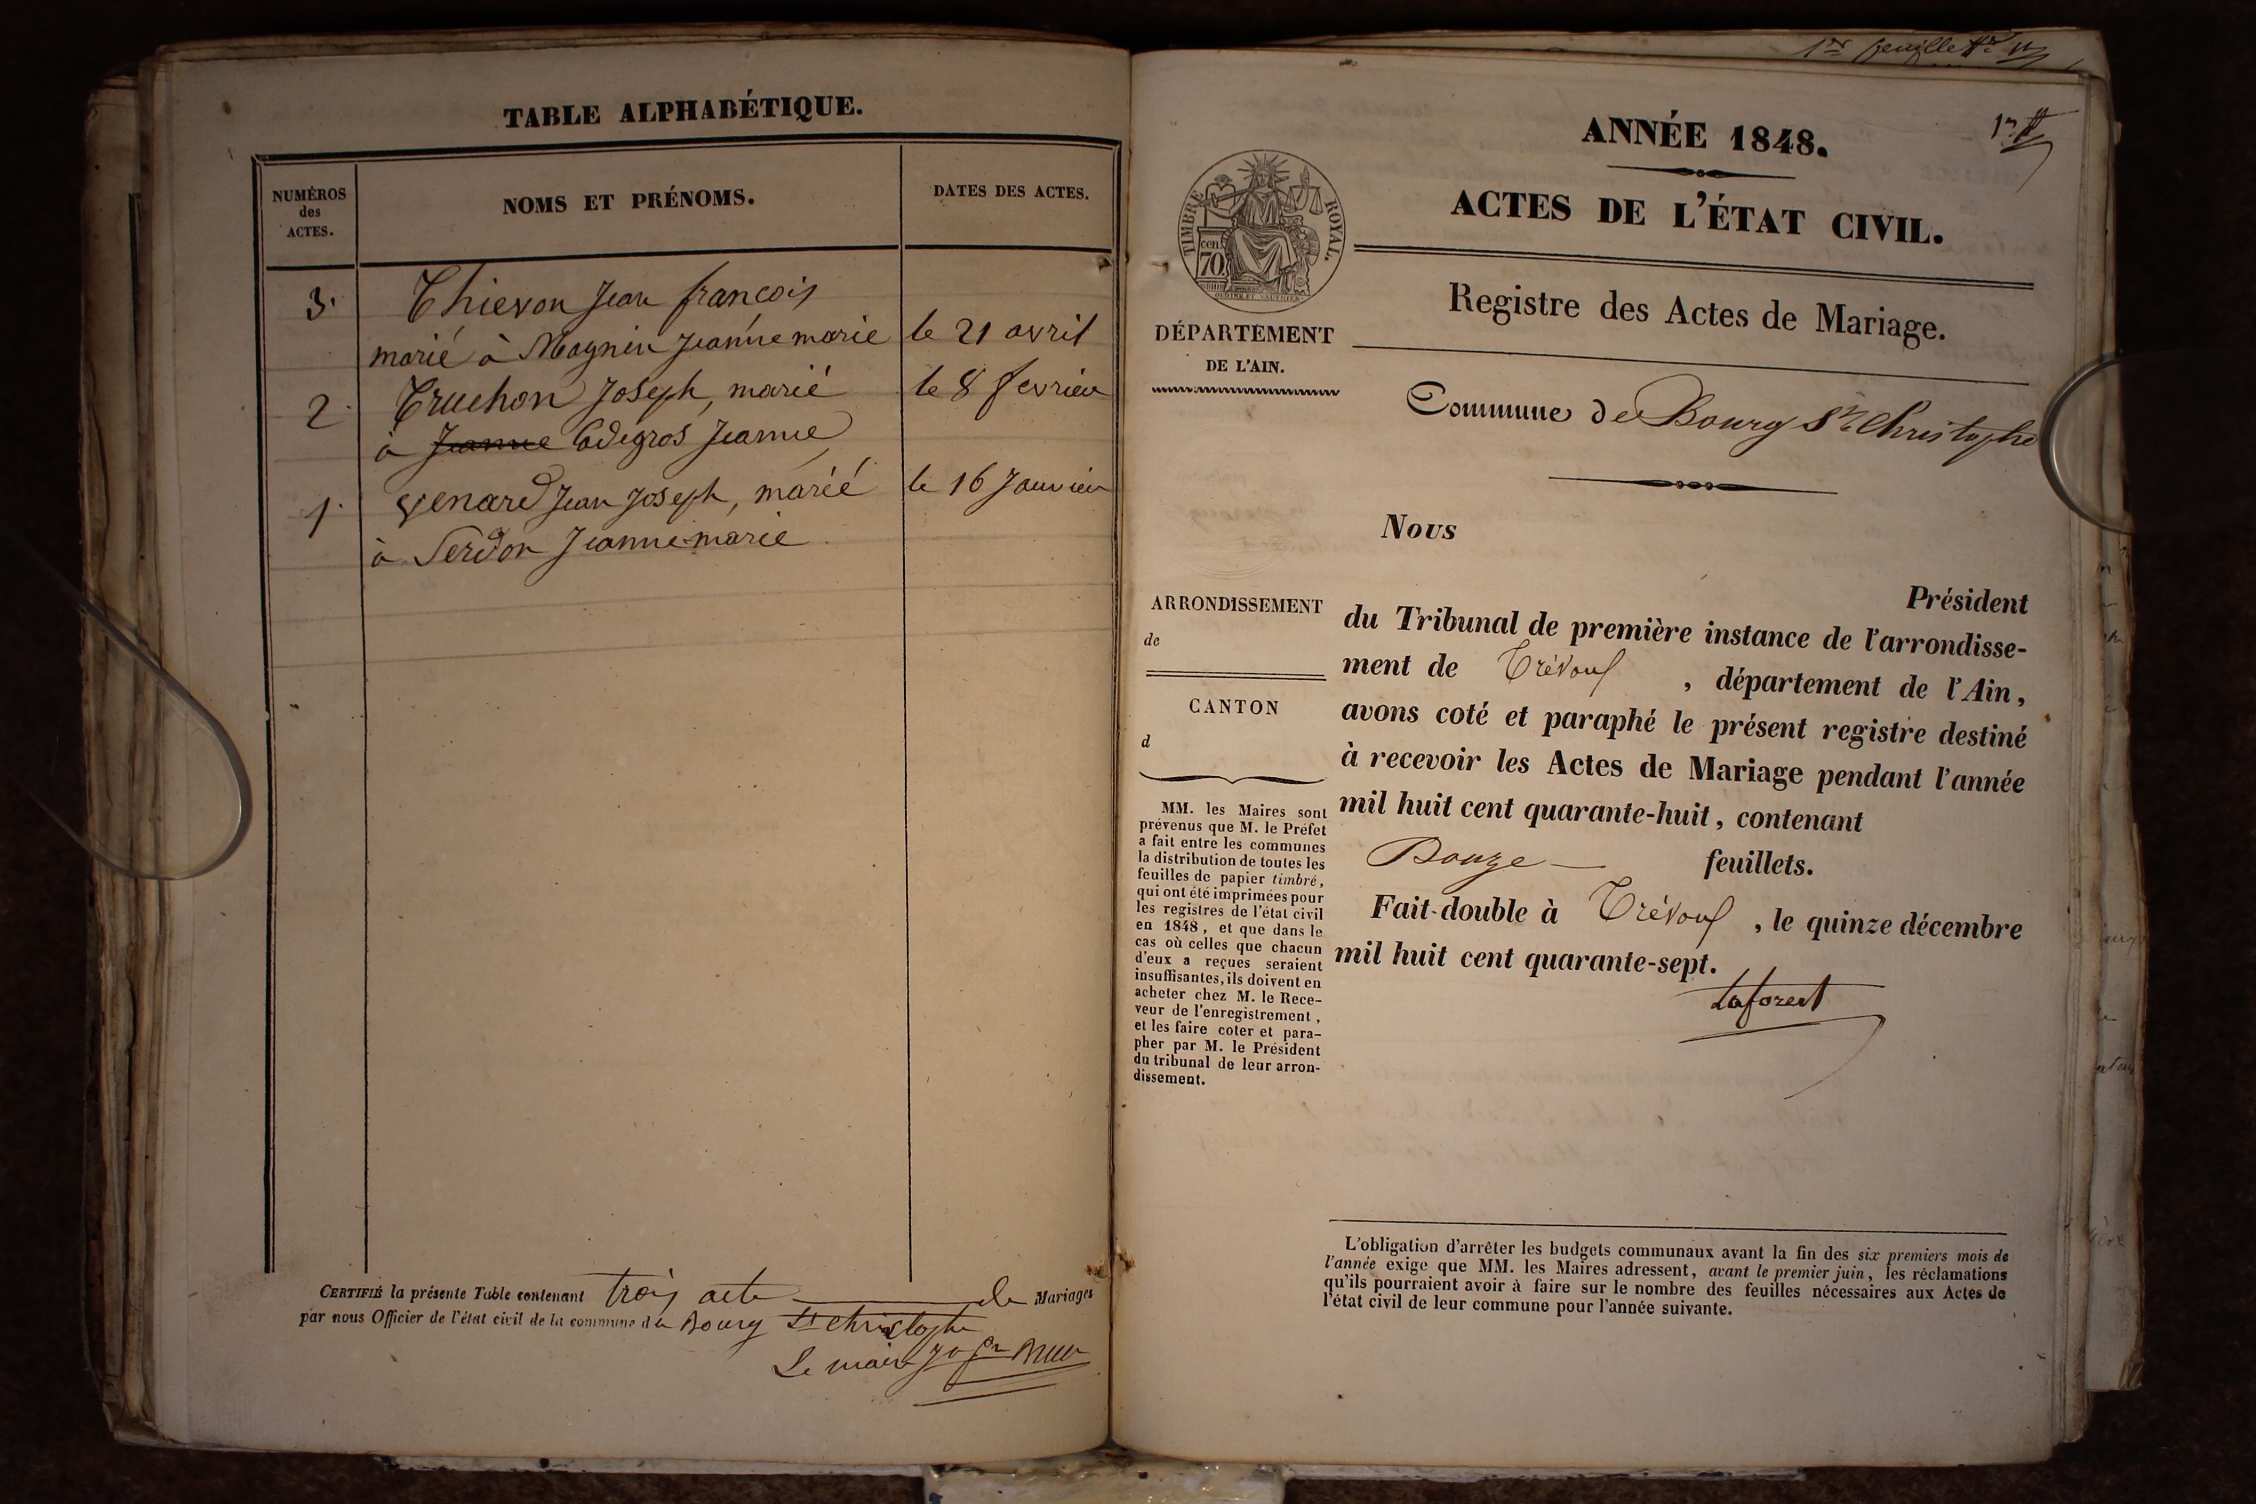 TABLE ALPHABÉTIQUE.
NUMÉROS
des
ACTES.
NOMS ET PRÉNOMS.
DATES DES ACTES.
3. Thievon Jean françois
marié à Magnin Jeanne marie le 21 avril
2. Truchon Joseph, marié le 8 fevrier
à Jeanne Codegros Jeanne
1. Venard Jean Joseph, marié le 16 Janvier
à Serdon Jeanne marie
CERTIFIÉ la présente Table contenant trois acte de Mariages
par nous Officier de l'état civil de la commune de Bourg St christophe
Le maire
1er feuillet
1er
ANNÉE 1848.
ACTES DE L'ÉTAT CIVIL.
TIMBRE ROYAL.
cen.
70
Registre des Actes de Mariage.
DÉPARTEMENT
DE L'AIN.
Commune de Bourg St Christophe
Nous
Président
du Tribunal de première instance de l'arrondisse-
ment de Trévoux, département de l'Ain,
avons coté et paraphé le présent registre destiné
à recevoir les Actes de Mariage pendant l'année
mil huit cent quarante-huit, contenant
Douze feuillets.
Fait double à Trévoux, le quinze décembre
mil huit cent quarante-sept.
Laforest
ARRONDISSEMENT
de
CANTON
d
MM. les Maires sont
prévenus que M. le Préfet
a fait entre les communes
la distribution de toutes les
feuilles de papier timbré,
qui ont été imprimées pour
les registres de l'état civil
en 1848, et que dans le
cas où celles que chacun
d'eux a reçues seraient
insuffisantes, ils doivent en
acheter chez M. le Rece-
veur de l'enregistrement,
et les faire coter et para-
pher par M. le Président
du tribunal de leur arron-
dissement.
L'obligation d'arrêter les budgets communaux avant la fin des six premiers mois de
l'année exige que MM. les Maires adressent, avant le premier juin, les réclamations
qu'ils pourraient avoir à faire sur le nombre des feuilles nécessaires aux Actes de
l'état civil de leur commune pour l'année suivante.